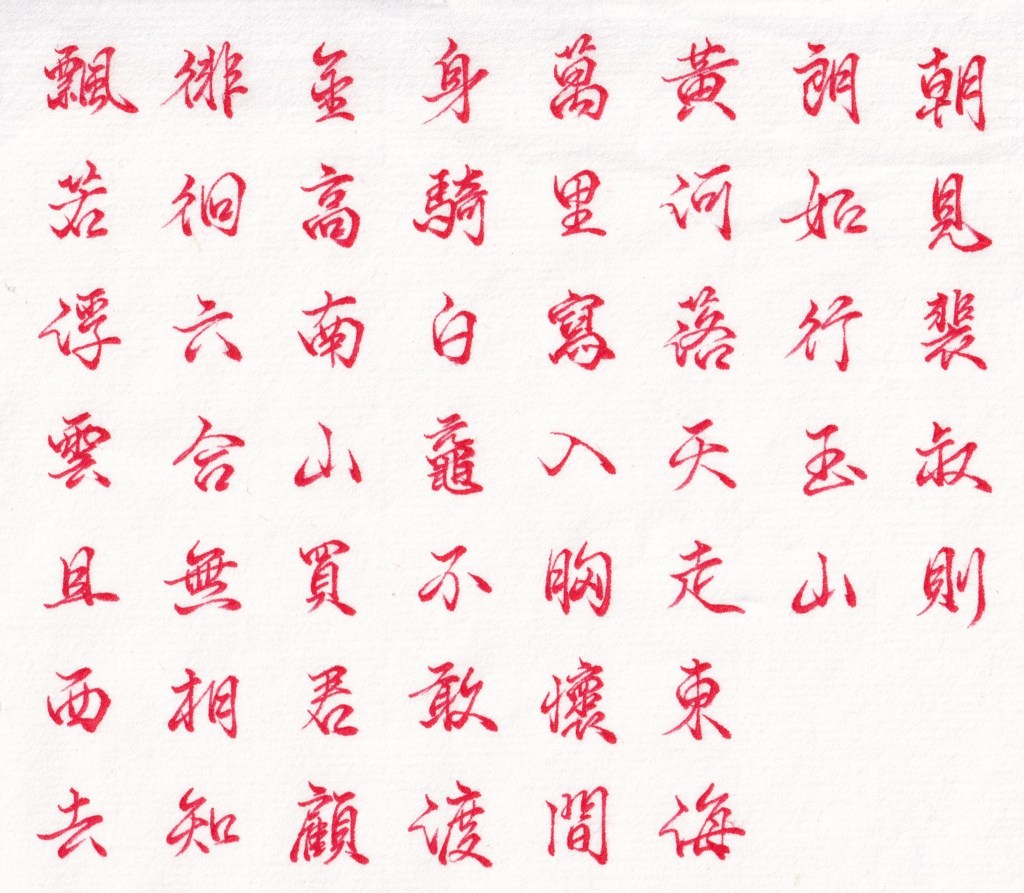 朝見裴叔則
朗如行玉山
黃河落天走東海
萬里寫入胸懷間
身騎白黿不敢渡
金高南山買君顧
徘徊六合無相知
飄若浮雲且西去